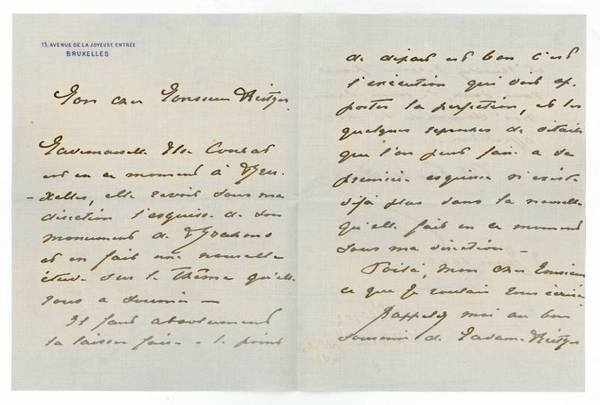 13, AVENUE DE LA JOYEUSE ENTRÉE
BRUXELLES
Mon cher Monsieur
Mademoiselle Ilse Conrat
est en ce moment à Bru-
-xelles, elle revoit sous ma
direction l'esquisse de son
monument de Brahms
et en fait une nouvelle
étude sur le thème qu'elle
vous a soumis —
Il faut absolument
la laisser faire — le point
de départ est bon c'est
l'exécution qui doit ap
porter la perfection, et les
quelques reproches de détails
que l'on peut faire a sa
première esquisse n'existe
déjà plus dans la nouvelle
qu'elle fait en ce moment
sous ma direction —
Voilà, mon cher Monsieur
ce que je voulais vous écrire
Rappelez moi au bon
souvenir de Madame